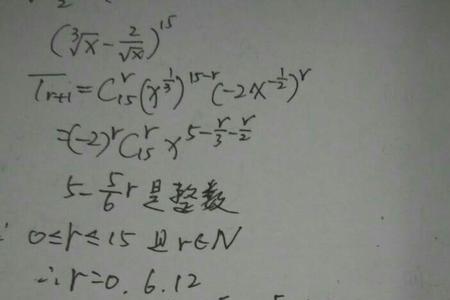 (∛x − 2/√x)^15
T_{r+1} = C_{15}^{r} (x^{1/3})^{15−r} (−2x^{−1/2})^{r}
= (−2)^{r} C_{15}^{r} x^{5 − r/3 − r/2}
5 − 5/6 r 是整数
0 ≤ r ≤ 15 且 r ∈ N
∴ r = 0. 6. 12